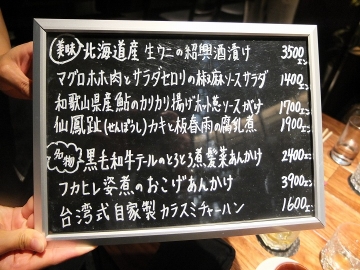 美味 北海道産 生ウニの紹興酒漬け 3500エン
マグロホホ肉とサラダセロリの椒麻ソースサラダ 1400エン
和歌山県産鮎のカリカリ揚げネギ忩ソースがけ 1700エン
仙鳳趾(せんぽうし)カキと板春雨の腐乳煮 1900エン
名物 黒毛和牛テールのとろとろ煮髪菜あんかけ 2400エン
フカヒレ姿煮のおこげあんかけ 3900エン
台湾式自家製カラスミチャーハン 1600エン